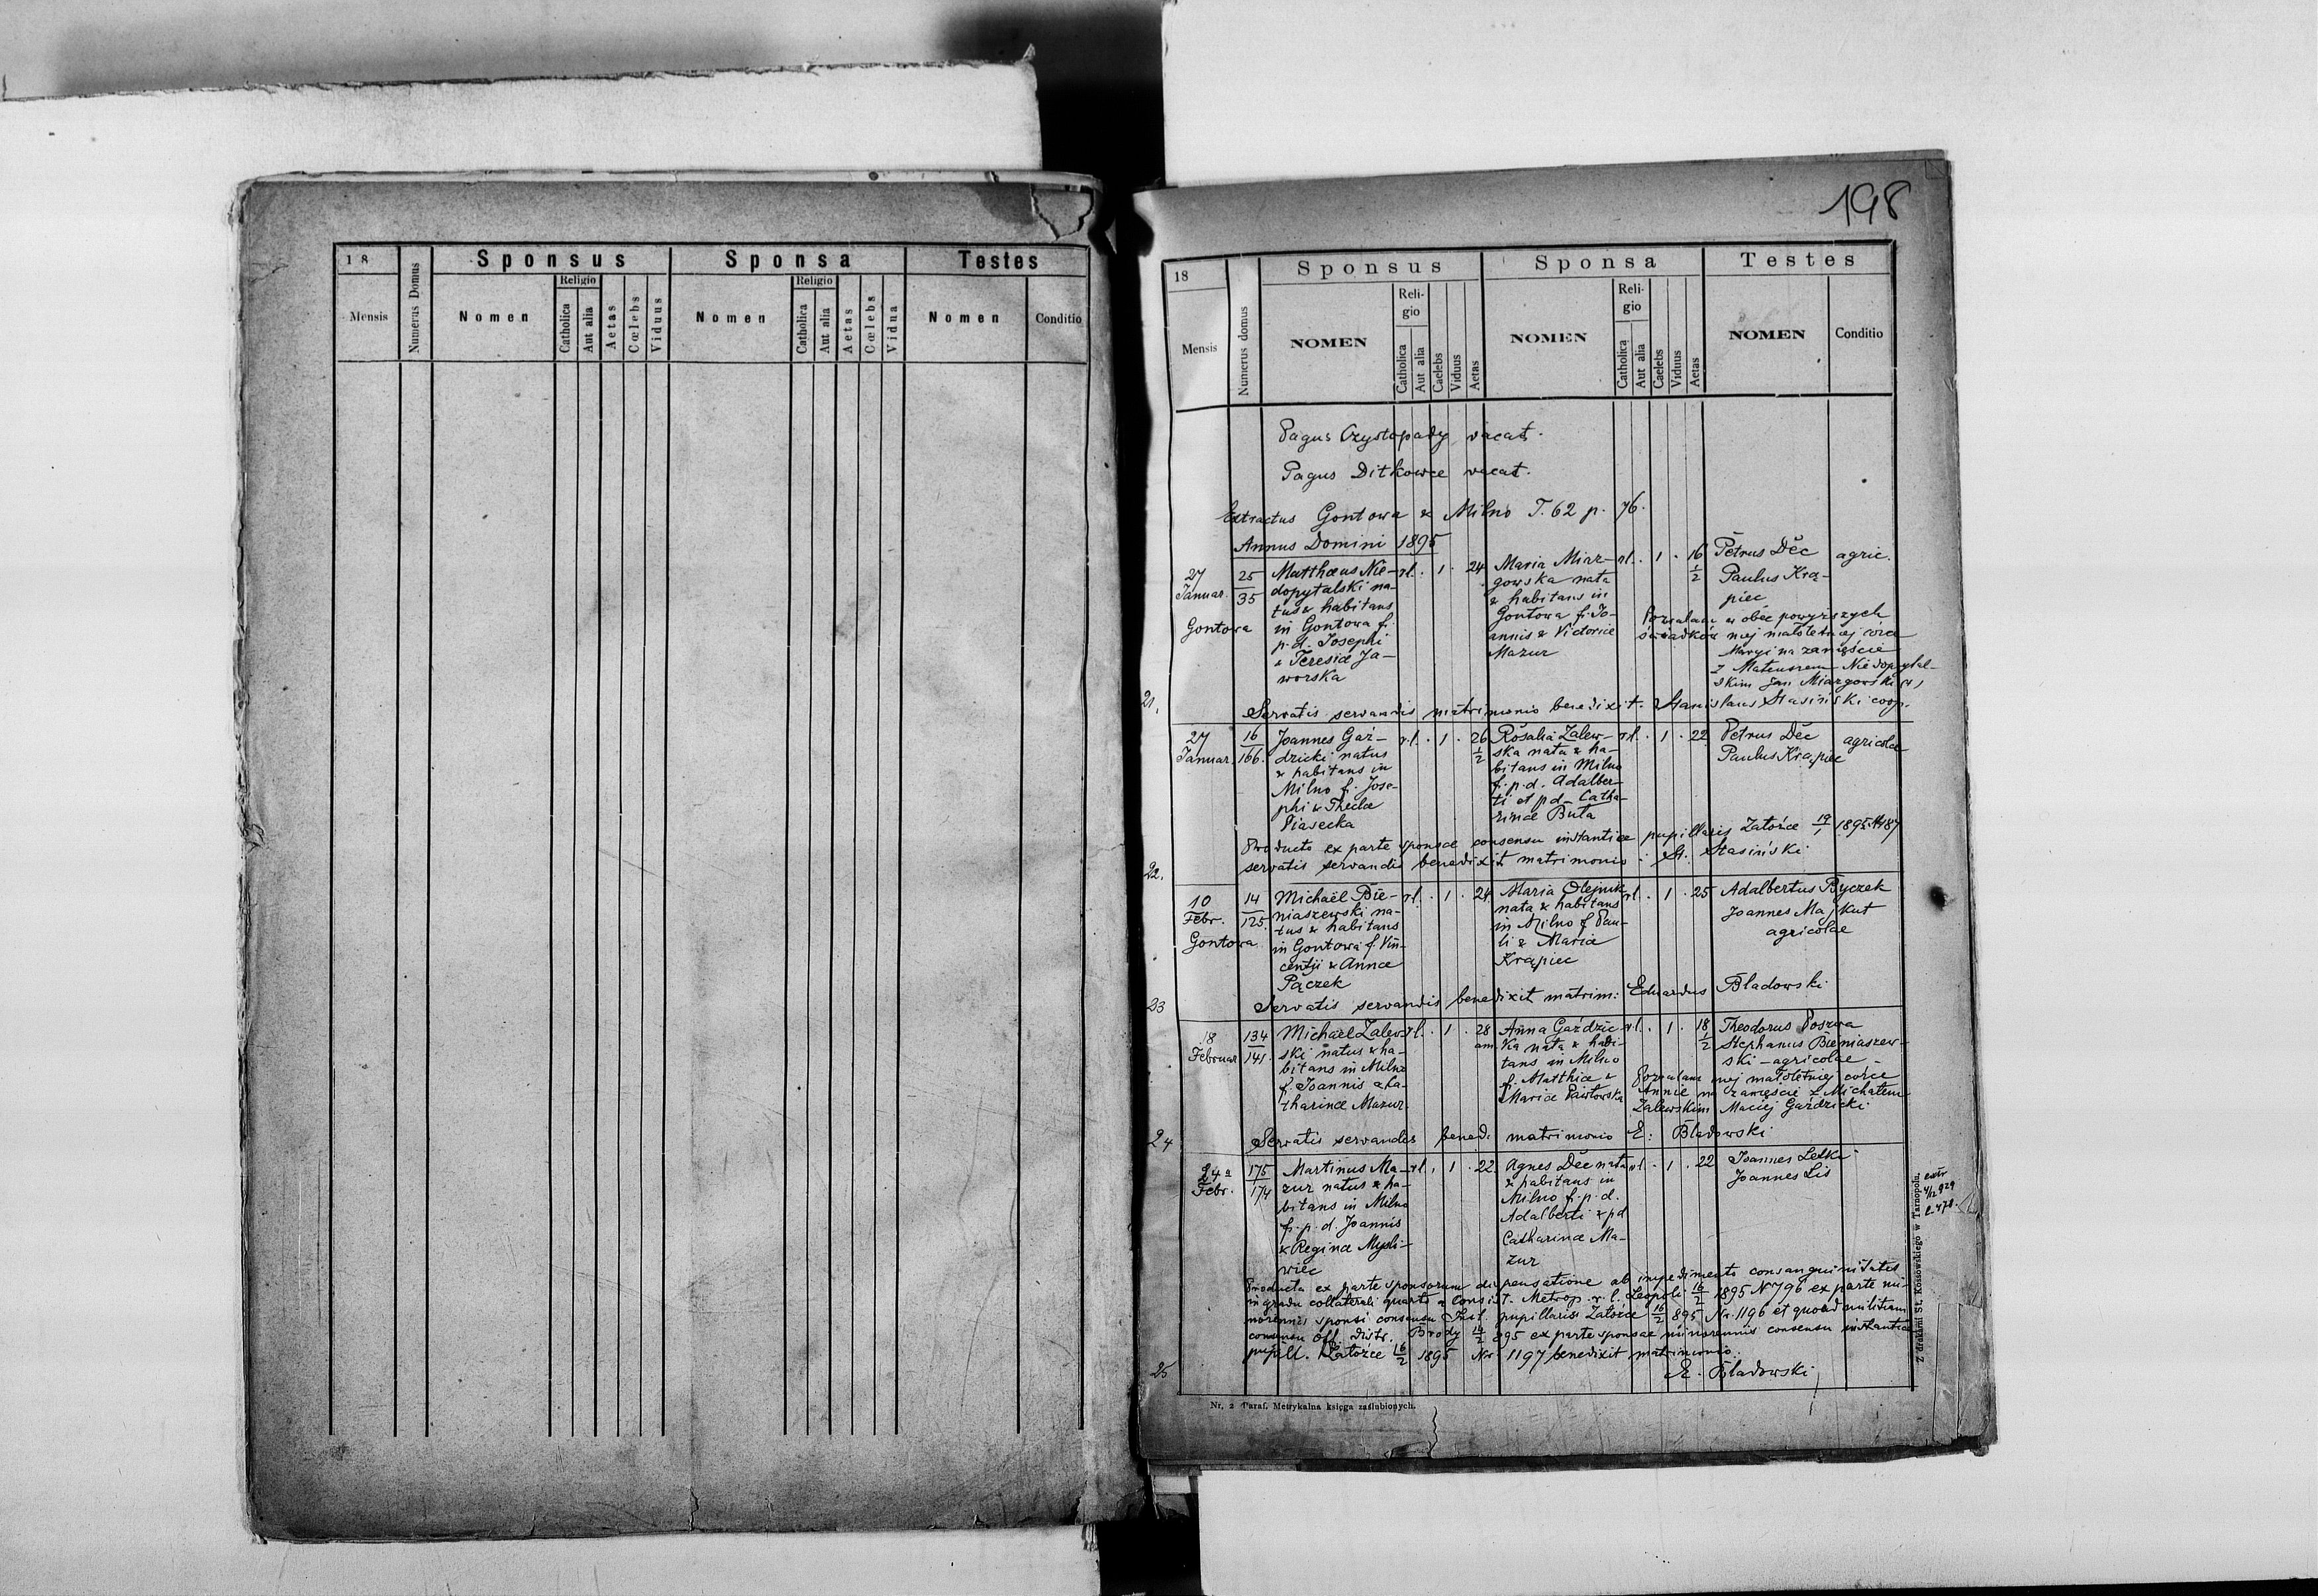 18
Numerus Domus
Sponsus
Sponsa
Testes
Mensis
Nomen
Religio
Catholica
Aut alia
Aetas
Cœlebs
Viduus
Nomen
Religio
Catholica
Aut alia
Aetas
Cœlebs
Vidua
Nomen
Conditio
198
18
Numerus domus
Sponsus
Sponsa
Testes
Mensis
NOMEN
Reli-
gio
Catholica
Aut alia
Caelebs
Viduus
Aetas
NOMEN
Reli-
gio
Catholica
Aut alia
Caelebs
Viduus
Aetas
NOMEN
Conditio
Pagus Czystopady vacat.
Pagus Ditkowce vacat.
Extractus Gontowa & Milno T. 62 p. 76.
Annus Domini 1895
27
Januar.
Gontowa
25
35
Matthæus Nie-
dopytalski na-
tus & habitans
in Gontowa f.
p. d. Josephi
& Teresiæ Ja-
worska
rl. 1 . 24
Maria Miaz-
gowska nata
& habitans in
Gontowa f. Jo-
annis & Victoriæ
Mazur
rl. 1 . 16 1/2
Petrus Dĕc
Paulus Krą-
piec
agric.
Pozwalam w obec powyższych
świadków mej małoletniej córce
Maryi na zamęście
z Mateuszem Niedopytal-
skim Jan Miazgowski
21.
Servatis servandis matrimonio benedixit. Stanislaus Stasiński coop.
27
Januar.
16
166.
Joannes Gaź-
dzicki natus
& habitans in
Milno f. Jose-
phi & Theclæ
Piasecka
rl. . 1 . 26 1/2
Rosalia Zalew-
ska nata & ha-
bitans in Milno
f. p. d. Adalber-
ti et p d - Catha-
rinæ Buta
rl. 1 . 22
Petrus Dĕc
Paulus Krąpiec
agricolæ
Producto ex parte sponsæ consensu instantiæ pupillaris Załoźce 19/1 1895 N 187
servatis servandis benedixit matrimonio : St. Stasiński
22.
10
Febr.
Gontowa
14
125.
Michaël Bie-
niaszewski na-
tus & habitans
in Gontowa f. Vin-
centii & Annæ
Pączek
rl. . 1 . 24
Maria Olejnik
nata & habitans
in Milno f. Pau-
li & Maria
Krąpiec
rl. . 1 . 25
Adalbertus Byczek
Joannes Majkut
agricolae
23
Servatis servandis benedixit matrim: Eduardus Bladowski
18
Februar
134
141.
Michaël Zalew-
ski natus & ha-
bitans in Milno
f. Joannis & Ca-
tharinæ Mazur.
rl. . 1 . 28
Anna Gaździc-
ka nata & habi-
tans in Milno
f. Matthiæ &
Mariæ Pawłowska
rl. . 1 . 18 1/2
Theodorus Poszwa
Stephanus Bieniaszew-
ski - agricolae -
Pozwalam mej małoletniej córce
Annie na zamęście z Michałem
Zalewskim Maciej Gaździcki
24
Servatis servandis bened. matrimonio E: Bladowski
24
Febr.
175
174
Martinus Ma-
zur natus & ha-
bitans in Milno
f. p. d. Joannis
& Reginæ Myśli-
wiec
rl. . 1 . 22
Agnes Dĕc nata
& habitans in
Milno f. p. d.
Adalberti & p d
Catharinæ Ma-
zur
rl . 1 . 22
Joannes Letki
Joannes Lis
Producta ex parte sponsorum dispensatione ab impedimento consanguinitatis
in gradu collaterali quarto a Consist. Metrop. r. l. Leopoli 16/2 1895 N 796 ex parte mi-
norennis sponsi consensu Inst. pupillaris Załoźce 16/2 895 Nr. 1196 et quoad militiam
consensu Off. Distr. Brody 14/2 895 ex parte sponsæ minorennis consensu instantiæ
pupill. Załoźce 16/2 1895 Nr 1197 benedixit matrimonio.
25
E. Bladowski
Nr. 2 Paraf. Metrykalna księga zaślubionych.
Z drukarni St. Kossowskiego w Tarnopolu.